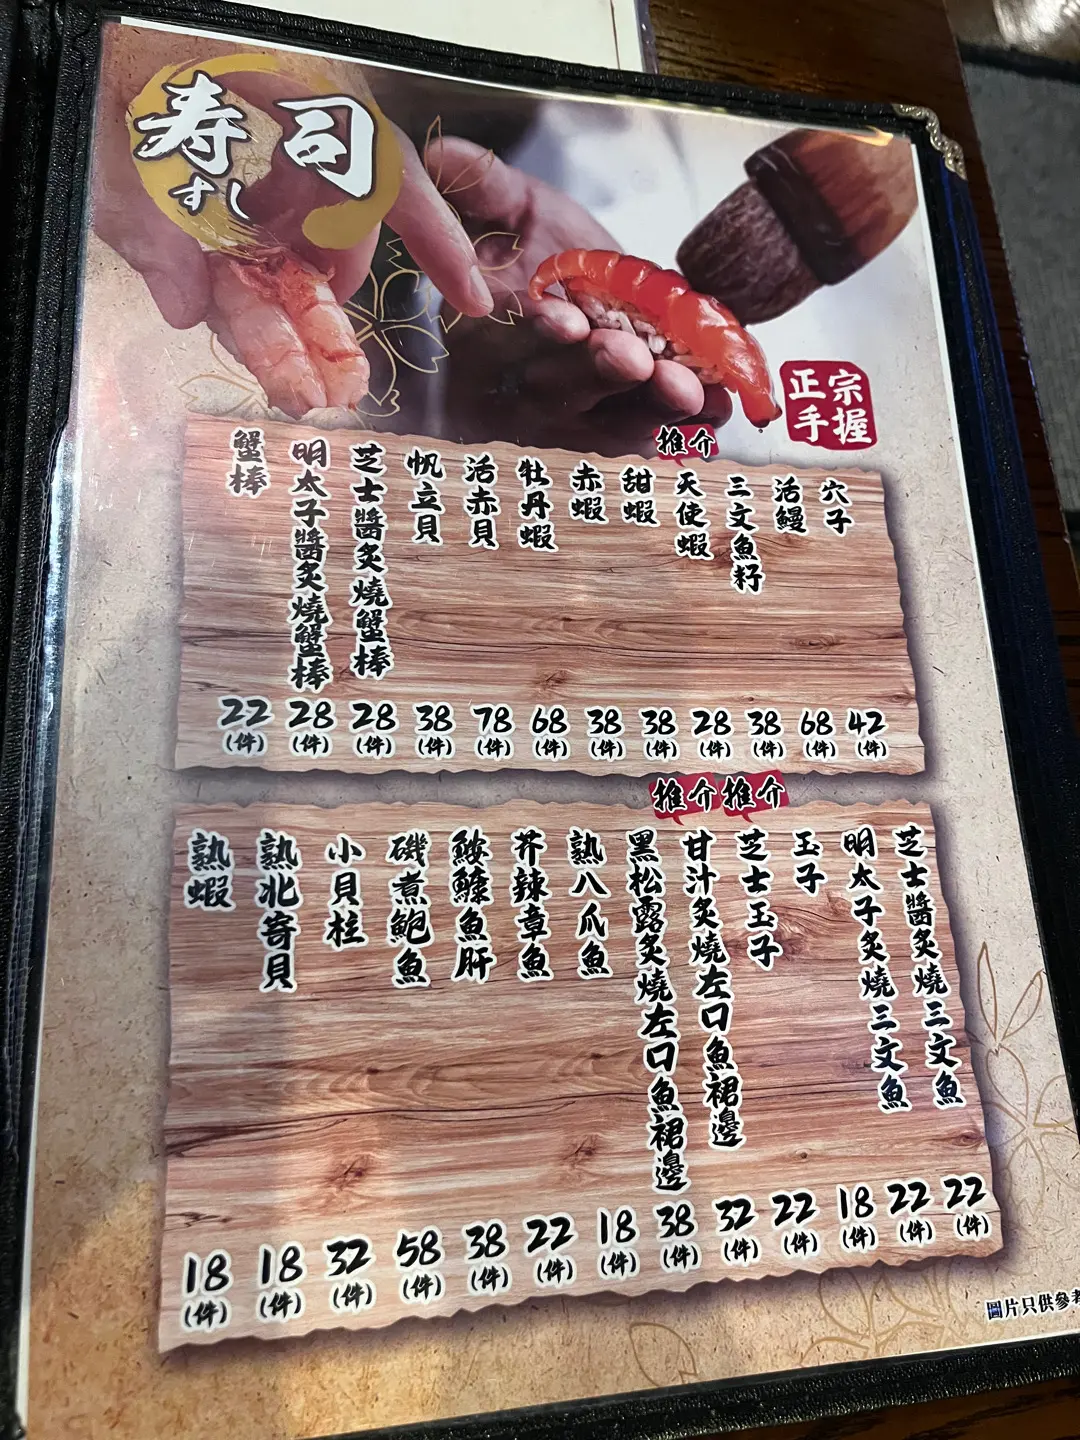 寿司
すし
正宗
手握
推介
蟹棒
明太子醬炙燒蟹棒
芝士醬炙燒蟹棒
帆立貝
活赤貝
牡丹蝦
赤蝦
甜蝦
天使蝦
三文魚籽
活鰻
穴子
22 28 28 38 78 68 38 38 28 38 68 42
(件) (件) (件) (件) (件) (件) (件) (件) (件) (件) (件) (件)
推介 推介
熟蝦
熟北寄貝
小貝柱
磯煮鮑魚
鮟鱇魚肝
芥辣章魚
熟八爪魚
黑松露炙燒左口魚裙邊
甘汁炙燒左口魚裙邊
芝士玉子
玉子
明太子炙燒三文魚
芝士醬炙燒三文魚
18 18 32 58 38 22 18 38 32 22 18 22 22
(件) (件) (件) (件) (件) (件) (件) (件) (件) (件) (件) (件) (件)
圖片只供參考